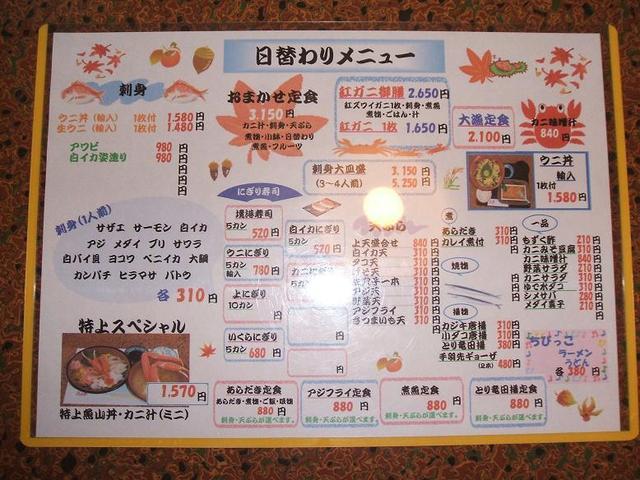 日替わりメニュー
刺身
ウニ丼(輸入) 1枚付 1.580円
生ウニ(輸入) 1枚付 1.480円
アワビ 980円
白イカ姿造り 980円
円
円
円
おまかせ定食
3.150円
カニ汁・刺身・天ぷら
煮物・小鉢・日替わり
煮魚・フルーツ
紅ガニ御膳 2.650円
紅ズワイガニ1枚・刺身・煮魚
煮物・ごはん・汁
紅ガニ 1枚 1.650円
大漁定食
2.100円
カニ味噌汁
840円
刺身大皿盛 3.150円
(3～4人前) 5.250円
ウニ丼
輸入
1枚付
1.580円
刺身(1人前)
サザエ サーモン 白イカ
アジ メダイ ブリ サワラ
白バイ貝 ヨコワ ベニイカ 大鯛
カンパチ ヒラマサ バトウ
各310円
にぎり寿司
境港寿司
5カン 520円
ウニにぎり
5カン 780円
輸入
上にぎり
10カン 円
いくらにぎり
5カン 680円
白イカにぎり
5カン 570円
カニにぎり
5カン 円
円
円
天ぷら
上天盛合せ 840円
白イカ天 310円
タコ天 310円
げそ天 310円
310円
アジ天 310円
野菜天 310円
アジフライ 310円
さつまいも天 310円
煮
あらだき 310円
カレイ煮付 310円
焼物
揚物
カジキ唐揚 310円
小ダコ唐揚 310円
とり竜田揚 380円
手羽先ギョーザ 480円
(2本)
一品
もずく酢 210円
カニみそ豆腐 310円
カニ味噌汁 840円
野菜サラダ 210円
カニサラダ 310円
ゆでホタダコ 310円
シメサバ 280円
メダイ真子 210円
ちびっこ
ラーメン
うどん
各380円
特上スペシャル
1.570円
特上魚山丼・カニ汁(ミニ)
あらだき定食
あらだき・煮物・ご飯・吸物
880円
刺身・天ぷらが選べます。
アジフライ定食
880円
刺身・天ぷらが選べます。
煮魚定食
880円
刺身・天ぷらが選べます。
とり竜田揚定食
880円
刺身・天ぷらが選べます。